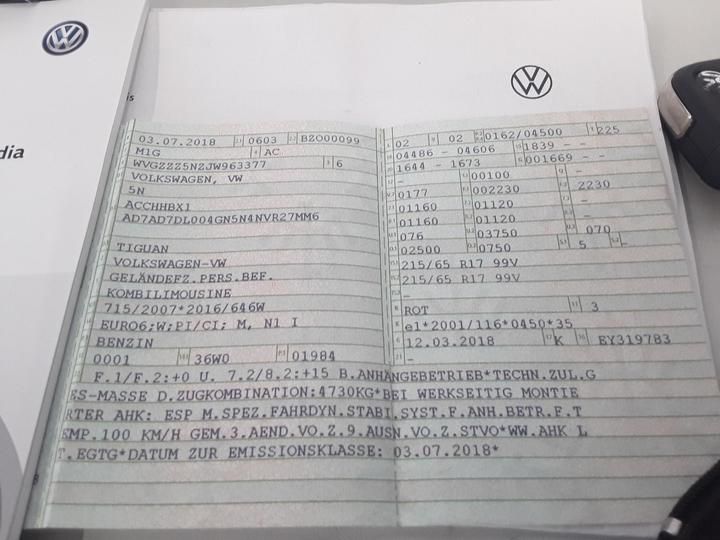 is
dia
03.07.2018 0603 BZO00099
M1G AC
WVGZZZ5NZJW963377 6
VOLKSWAGEN, VW
5N
ACCHHBX1
AD7AD7DL004GN5N4NVR27MM6
TIGUAN
VOLKSWAGEN-VW
GELÄNDEFZ.PERS.BEF.
KOMBILIMOUSINE
715/2007*2016/646W
EURO6;W;PI/CI; M, N1 I
BENZIN
0001 36W0 01984
02 02 0162/04500 225
04486 - 04606 1839 - -
1644 - 1673 001669 - -
- 00100 -
0177 002230 2230
01160 01120 -
01160 01120 -
076 03750 070
02500 0750 5 -
215/65 R17 99V
215/65 R17 99V
-
ROT 3
e1*2001/116*0450*35
12.03.2018 K EY319783
-
F.1/F.2:+0 U. 7.2/8.2:+15 B.ANHÄNGEBETRIEB*TECHN.ZUL.G
ES-MASSE D.ZUGKOMBINATION:4730KG*BEI WERKSEITIG MONTIE
RTER AHK: ESP M.SPEZ.FAHRDYN.STABI.SYST.F.ANH.BETR.F.T
EMP.100 KM/H GEM.3.AEND.VO.Z.9.AUSN.VO.Z.STVO*WW.AHK L
T.EGTG*DATUM ZUR EMISSIONSKLASSE: 03.07.2018*